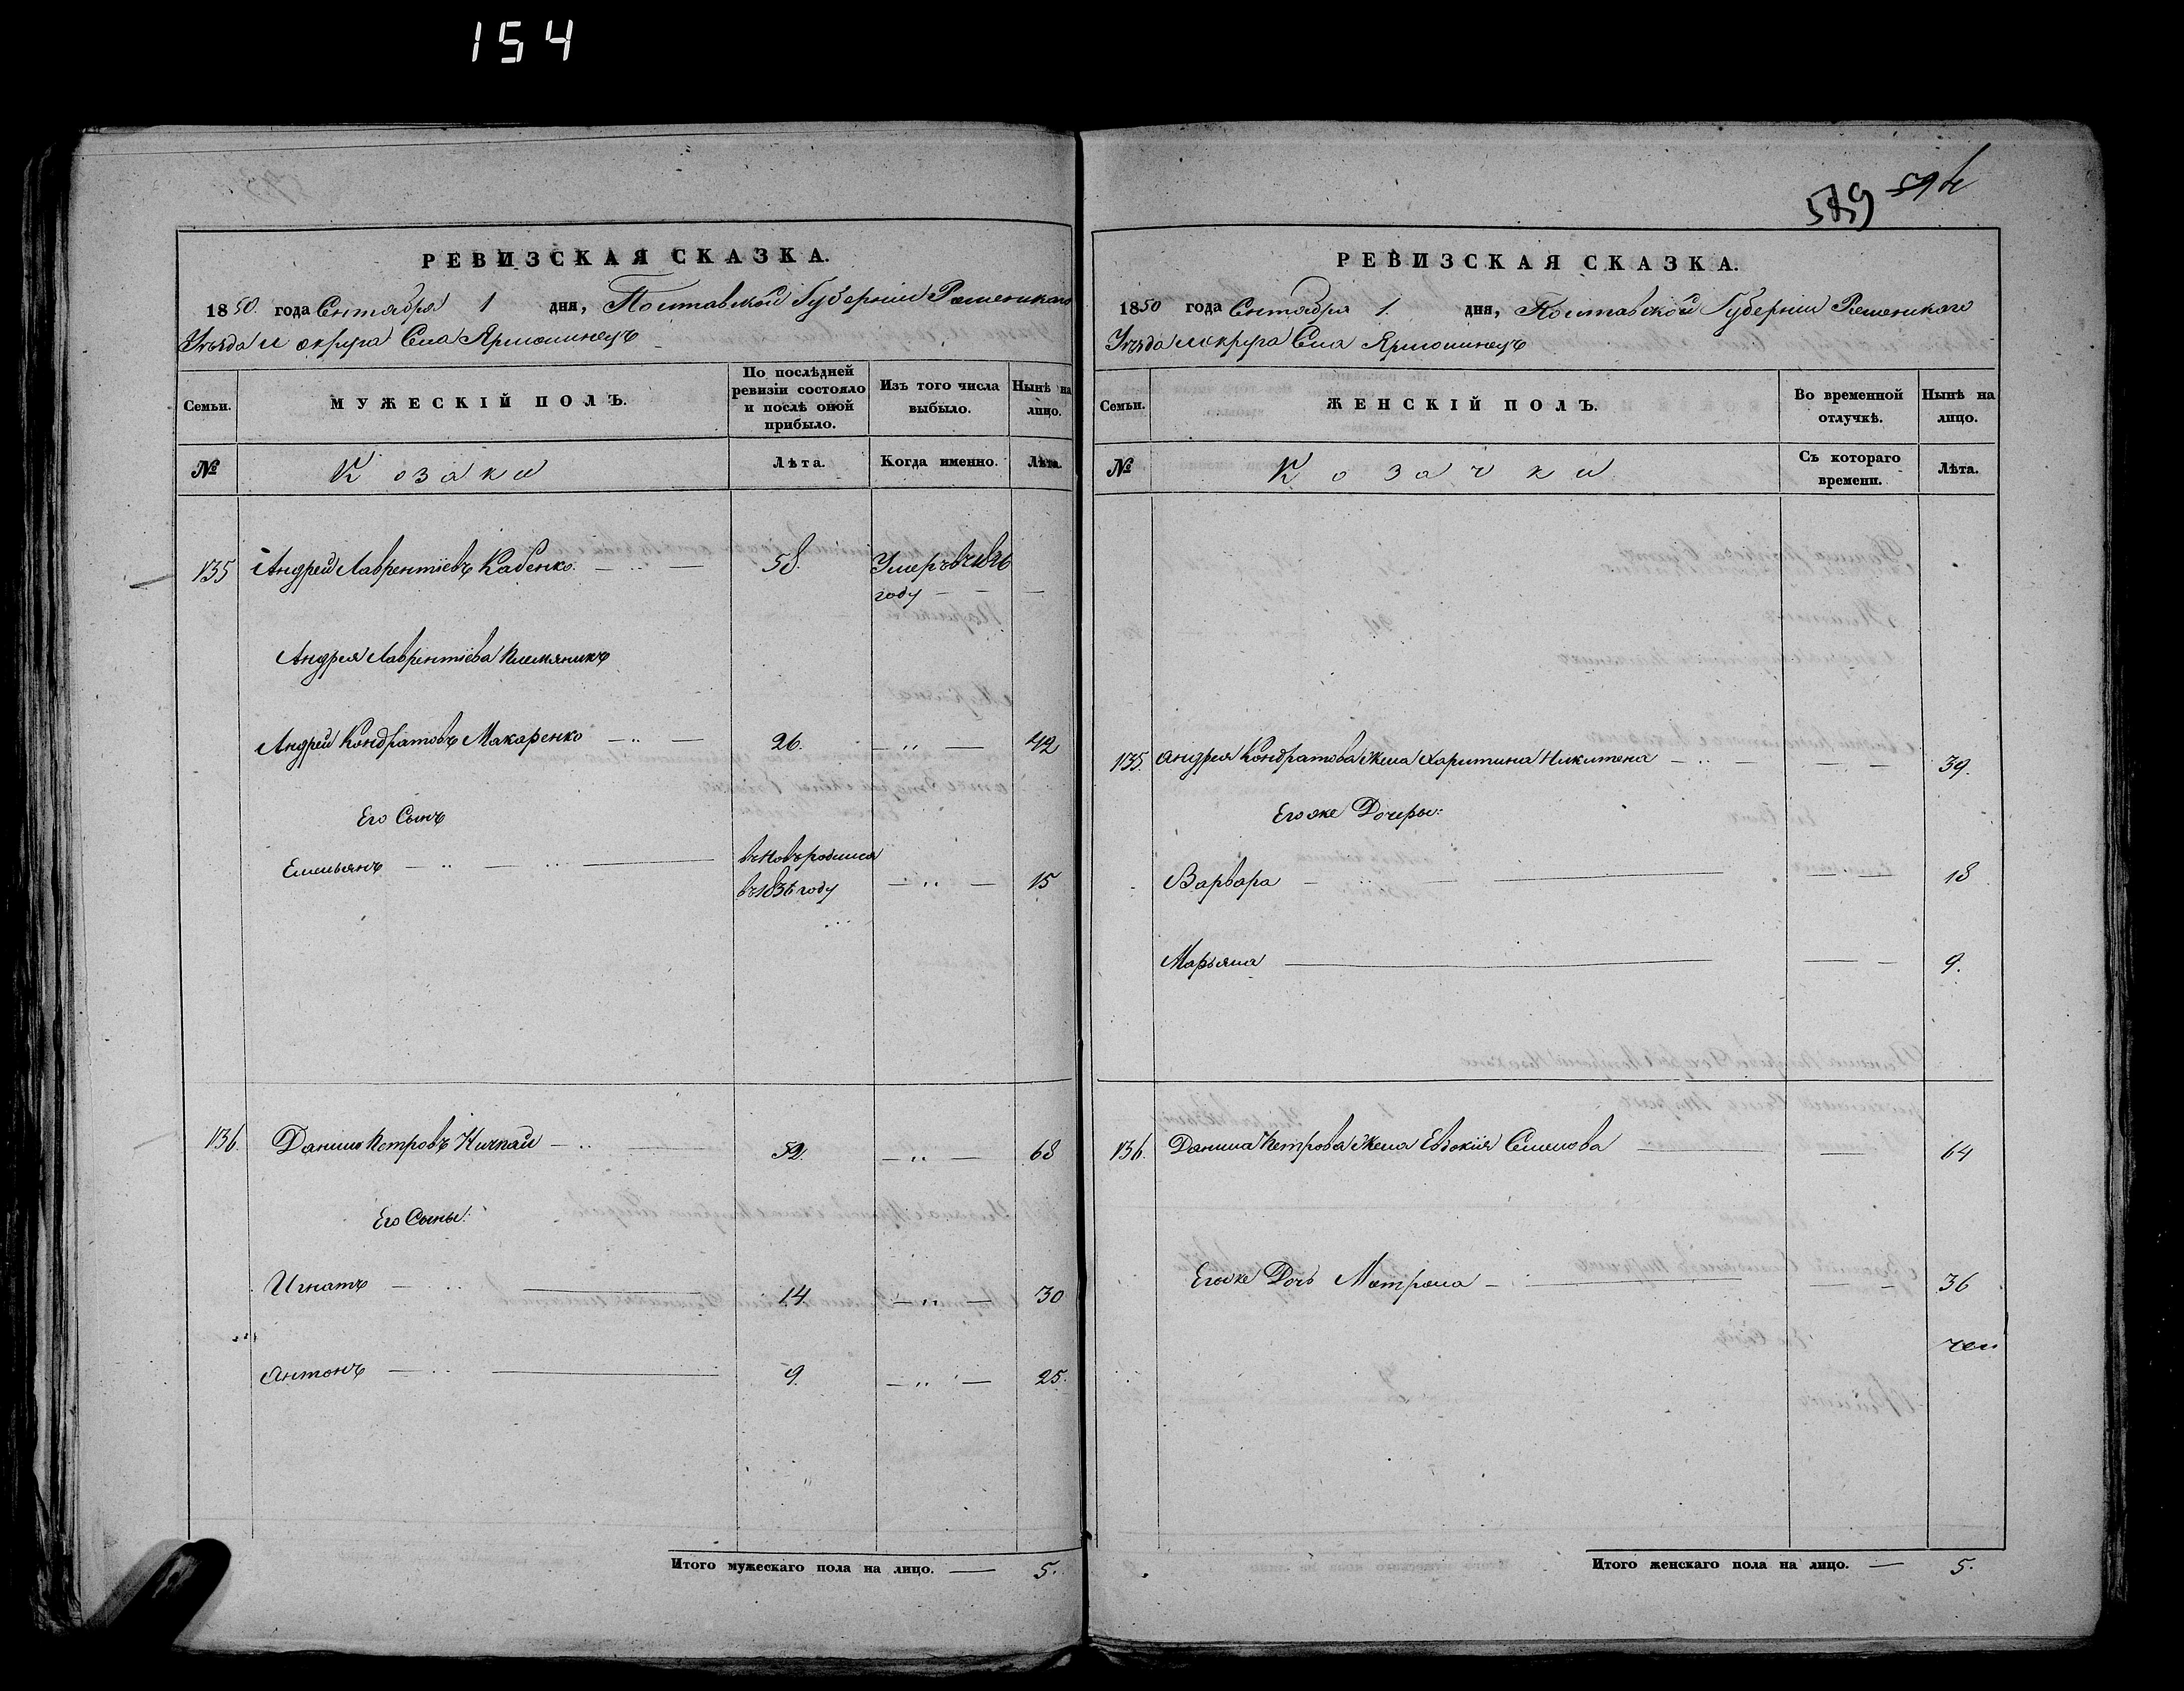 154
РЕВИЗСКАЯ СКАЗКА.
1850. года Сентября 1 дня, Полтавской Губерніи Роменскаго
Уѣзда и округа Села Ярмолинецъ
Семьи.
МУЖЕСКІЙ ПОЛЪ.
По послѣдней ревизіи состояло и послѣ оной прибыло.
Изъ того числа выбыло.
Нынѣ на лицо.
№
Козаки
Лѣта.
Когда именно.
Лѣта.
135 Андрей Лаврентіевъ Кабенко. 58. Умеръ въ
году
Андрея Лаврентіева племяникъ
Андрей Кондратовъ Макаренко 26. 42
Его Сынъ
Емельянъ вновь родился
въ 1836 году 15
136. Данило Петровъ Ничпай 52. 68
Его Сыны:
Игнатъ 14 30
Антонъ 9. 25.
Итого мужескаго пола на лицо. 5.
589 594
РЕВИЗСКАЯ СКАЗКА.
1850 года Сентября 1. дня, Полтавской Губерніи Роменскаго
Уѣзда и округа Села Ярмолинецъ
Семьи.
ЖЕНСКІЙ ПОЛЪ.
Во временной отлучкѣ.
Нынѣ на лицо.
№
Козачки
Съ котораго времени.
Лѣта.
135. Андрея Кондратова Жена Харитина Никитена 39.
Его же Дочеры:
Варвара 18
Марьяна 9.
136. Данила Петрова Жена Евдокия Семенова 64
Его же Дочь Мотрона 36
Итого женскаго пола на лицо. 5.